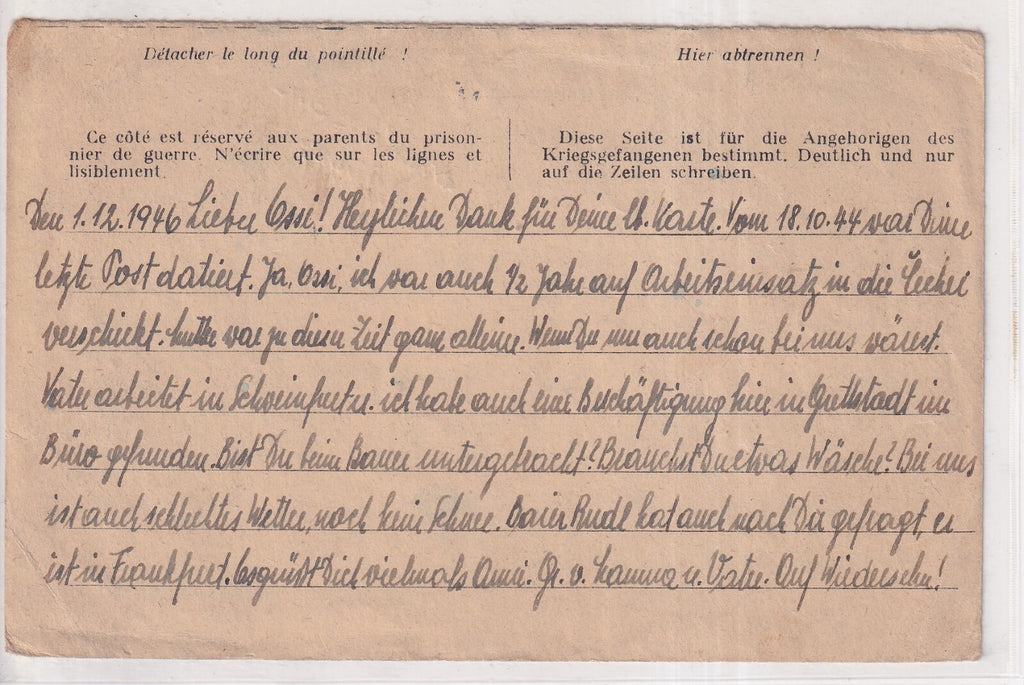 Détacher le long du pointillé !
Hier abtrennen !
Ce côté est réservé aux parents du prison-
nier de guerre. N'écrire que sur les lignes et
lisiblement.
Diese Seite ist für die Angehorigen des
Kriegsgefangenen bestimmt. Deutlich und nur
auf die Zeilen schreiben.
Den 1.12.1946 Lieber Ossi! Herzlichen Dank für Deine lb. Karte. Vom 18.10.44 war Deine
letzte Post datiert. Ja, Ossi, ich war auch 1/2 Jahr auf Arbeitseinsatz in die
verschickt. Mutter war zu dieser Zeit ganz alleine. Wenn Du nur auch schon bei uns wärest.
Vater arbeitet in Schweinfurt u. ich habe auch eine Beschäftigung hier in Grettstadt im
Büro gefunden. Bist Du beim Bauer untergebracht? Brauchst Du etwas Wäsche? Bei uns
ist auch schlechtes Wetter, noch kein Schnee. Baier Rudl hat auch nach Dir gefragt, er
ist in Frankfurt. Es grüßt Dich vielmals Anni. Gr. v. Mamma u. Vater. Auf Wiedersehn!